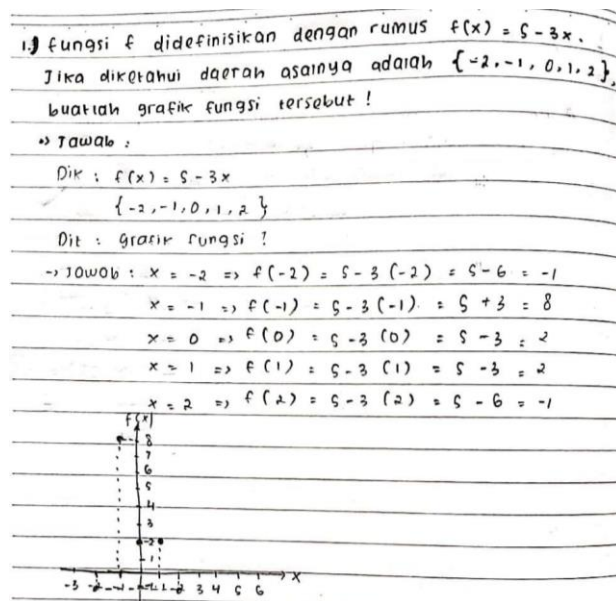 1.) Fungsi f didefinisikan dengan rumus f(x) = 5 - 3x.
Jika diketahui daerah asalnya adalah {-2, -1, 0, 1, 2},
buatlah grafik fungsi tersebut!
=> Jawab :
Dik : f(x) = 5 - 3x
{-2, -1, 0, 1, 2}
Dit : grafik fungsi ?
-> Jawab : x = -2 => f(-2) = 5 - 3(-2) = 5 - 6 = -1
x = -1 => f(-1) = 5 - 3(-1) = 5 + 3 = 8
x = 0 => f(0) = 5 - 3(0) = 5 - 3 = 2
x = 1 => f(1) = 5 - 3(1) = 5 - 3 = 2
x = 2 => f(2) = 5 - 3(2) = 5 - 6 = -1
f(x)
8
7
6
5
4
3
2
1
-3 -2 -1 1 2 3 4 5 6 x